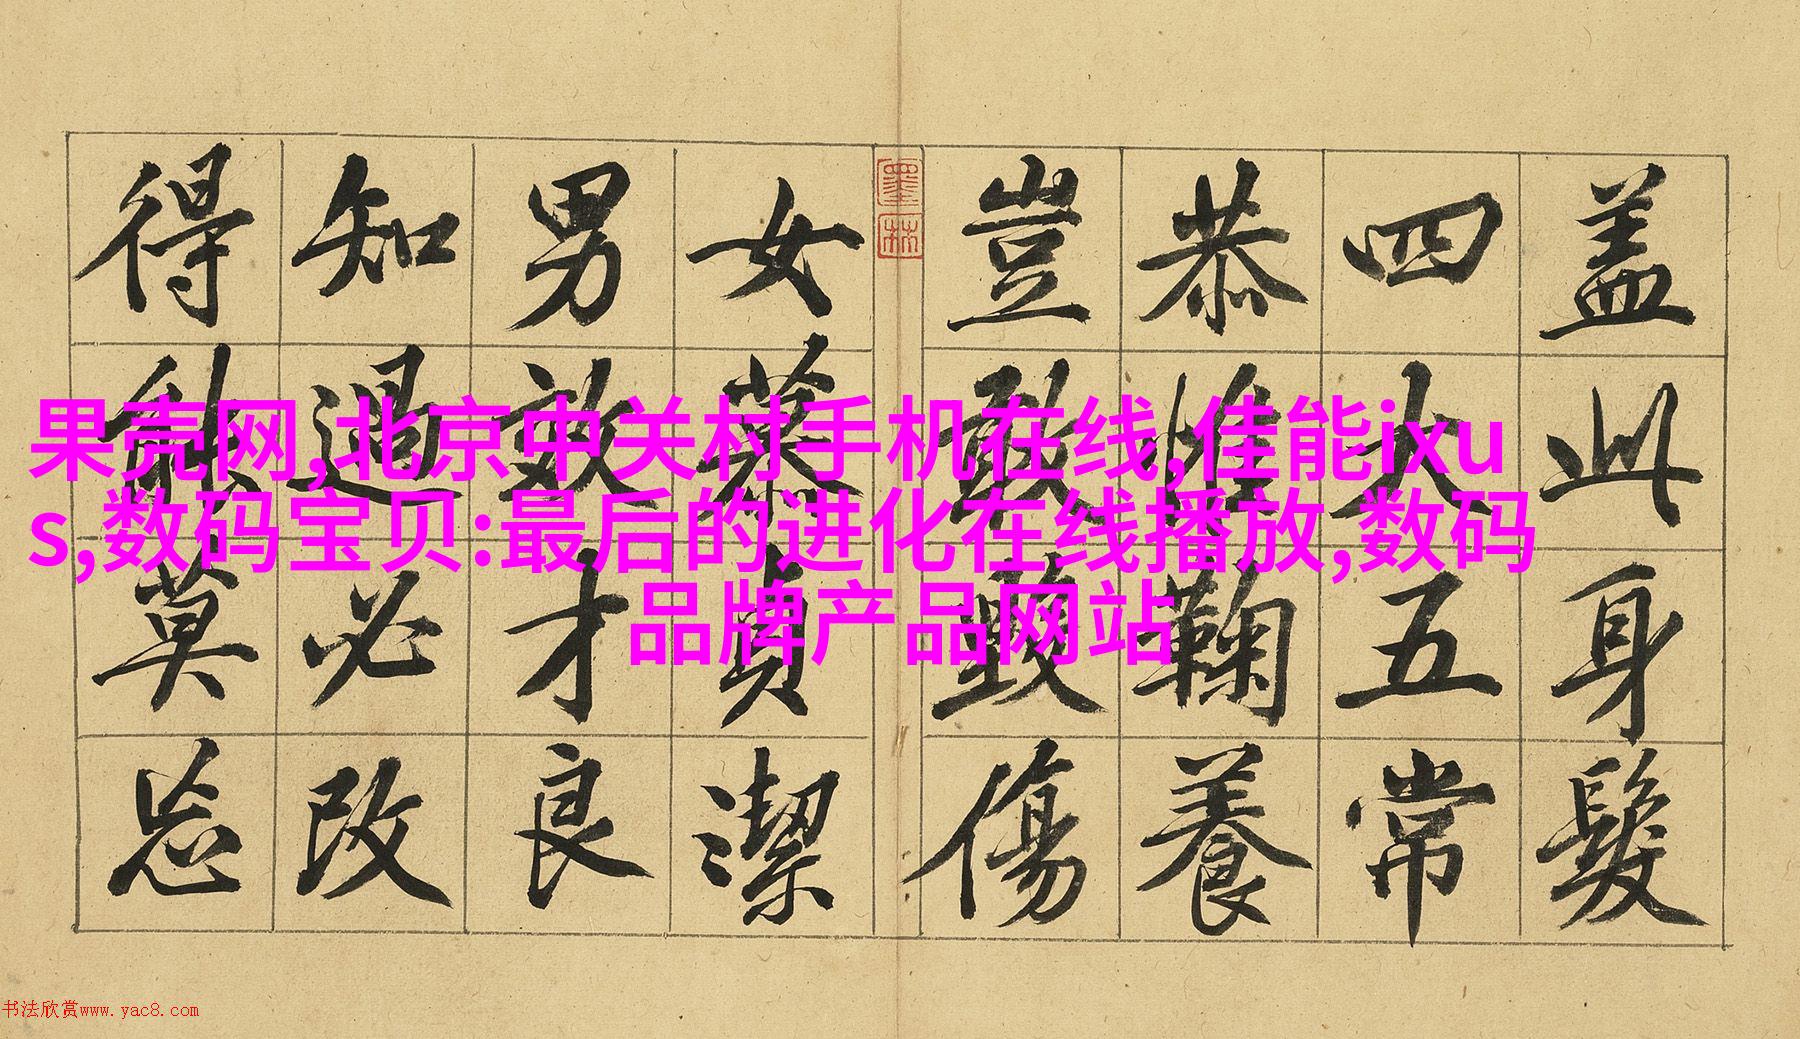 盖此身髮
四大五常
恭惟鞠養
豈敢毀傷
墨林
女慕貞潔
男效才良
知過必改
得能莫忘
果壳网,北京中关村手机在线,佳能ixu
s,数码宝贝:最后的进化在线播放,数码
品牌产品网站
书法欣赏www.yac8.com